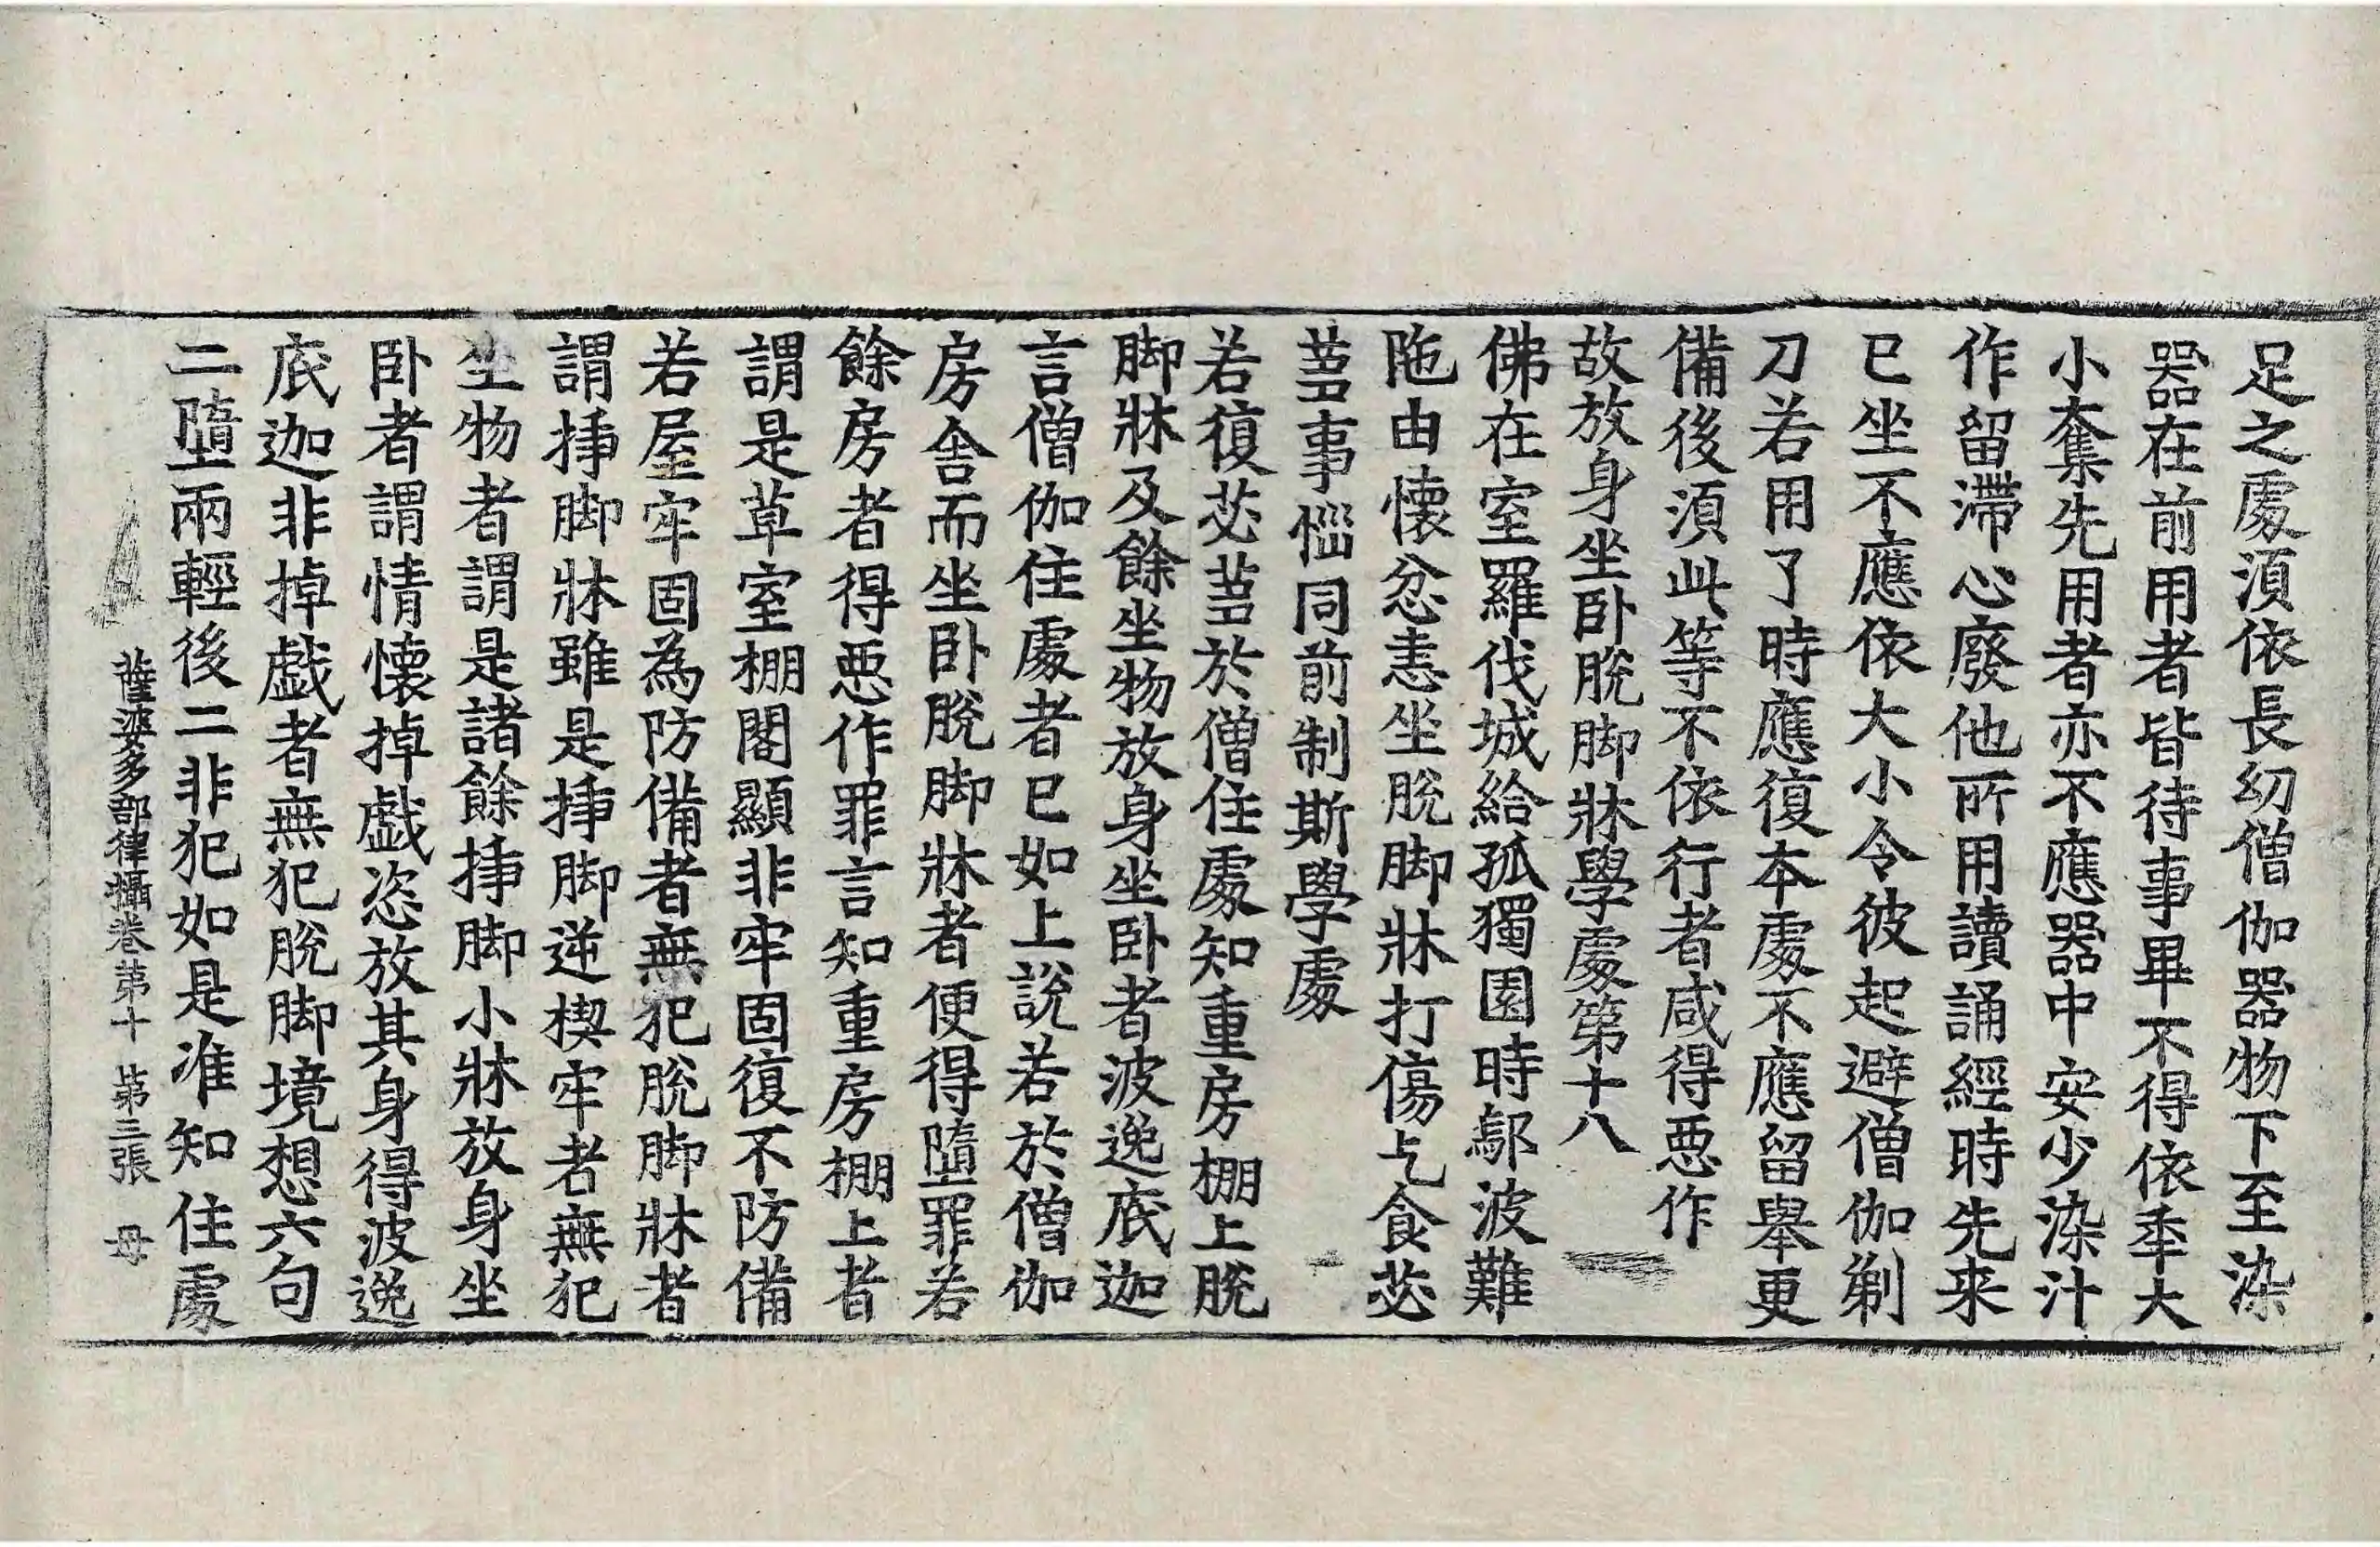 足之處湏依長幼僧伽器物下至染
器在前用者皆待事畢不得依秊大
小奪先用者亦不應器中安少染汁
作留滯心廢他所用讀誦經時先来
已坐不應依大小令彼起避僧伽剃
刀若用了時應復本處不應留舉更
備後湏此等不依行者咸得惡作
故放身坐卧脫脚牀學處第十八
佛在室羅伐城給孤獨園時鄔波難
陁由懷忿恚坐脫脚牀打傷乞食苾
蒭事惱同前制斯學處
若復苾蒭於僧住處知重房棚上脫
脚牀及餘坐物放身坐卧者波逸底迦
言僧伽住處者已如上說若於僧伽
房舍而坐卧脫脚牀者便得墮罪若
餘房者得惡作罪言知重房棚上者
謂是草室棚閣顯非牢固復不防備
若屋牢固為防備者無犯脫脚牀者
謂揷脚牀雖是揷脚逆楔牢者無犯
坐物者謂是諸餘揷脚小牀放身坐
卧者謂情懷掉戱恣放其身得波逸
底迦非掉戱者無犯脫脚境想六句
二墮兩輕後二非犯如是准知住處
薩婆多部律攝卷第十 第三張 母